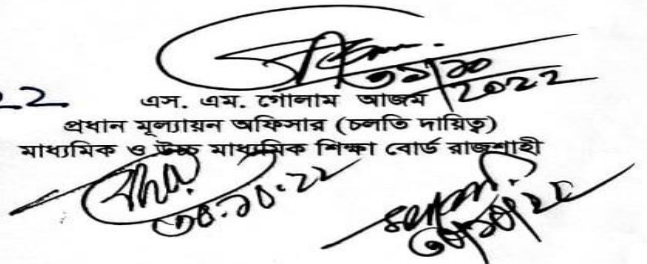 ৩১/১০/2022
22
এস. এম. গোলাম আজম
প্রধান মূল্যায়ন অফিসার (চলতি দায়িত্ব)
মাধ্যমিক ও উচ্চ মাধ্যমিক শিক্ষা বোর্ড রাজশাহী
৩০.১০.২২